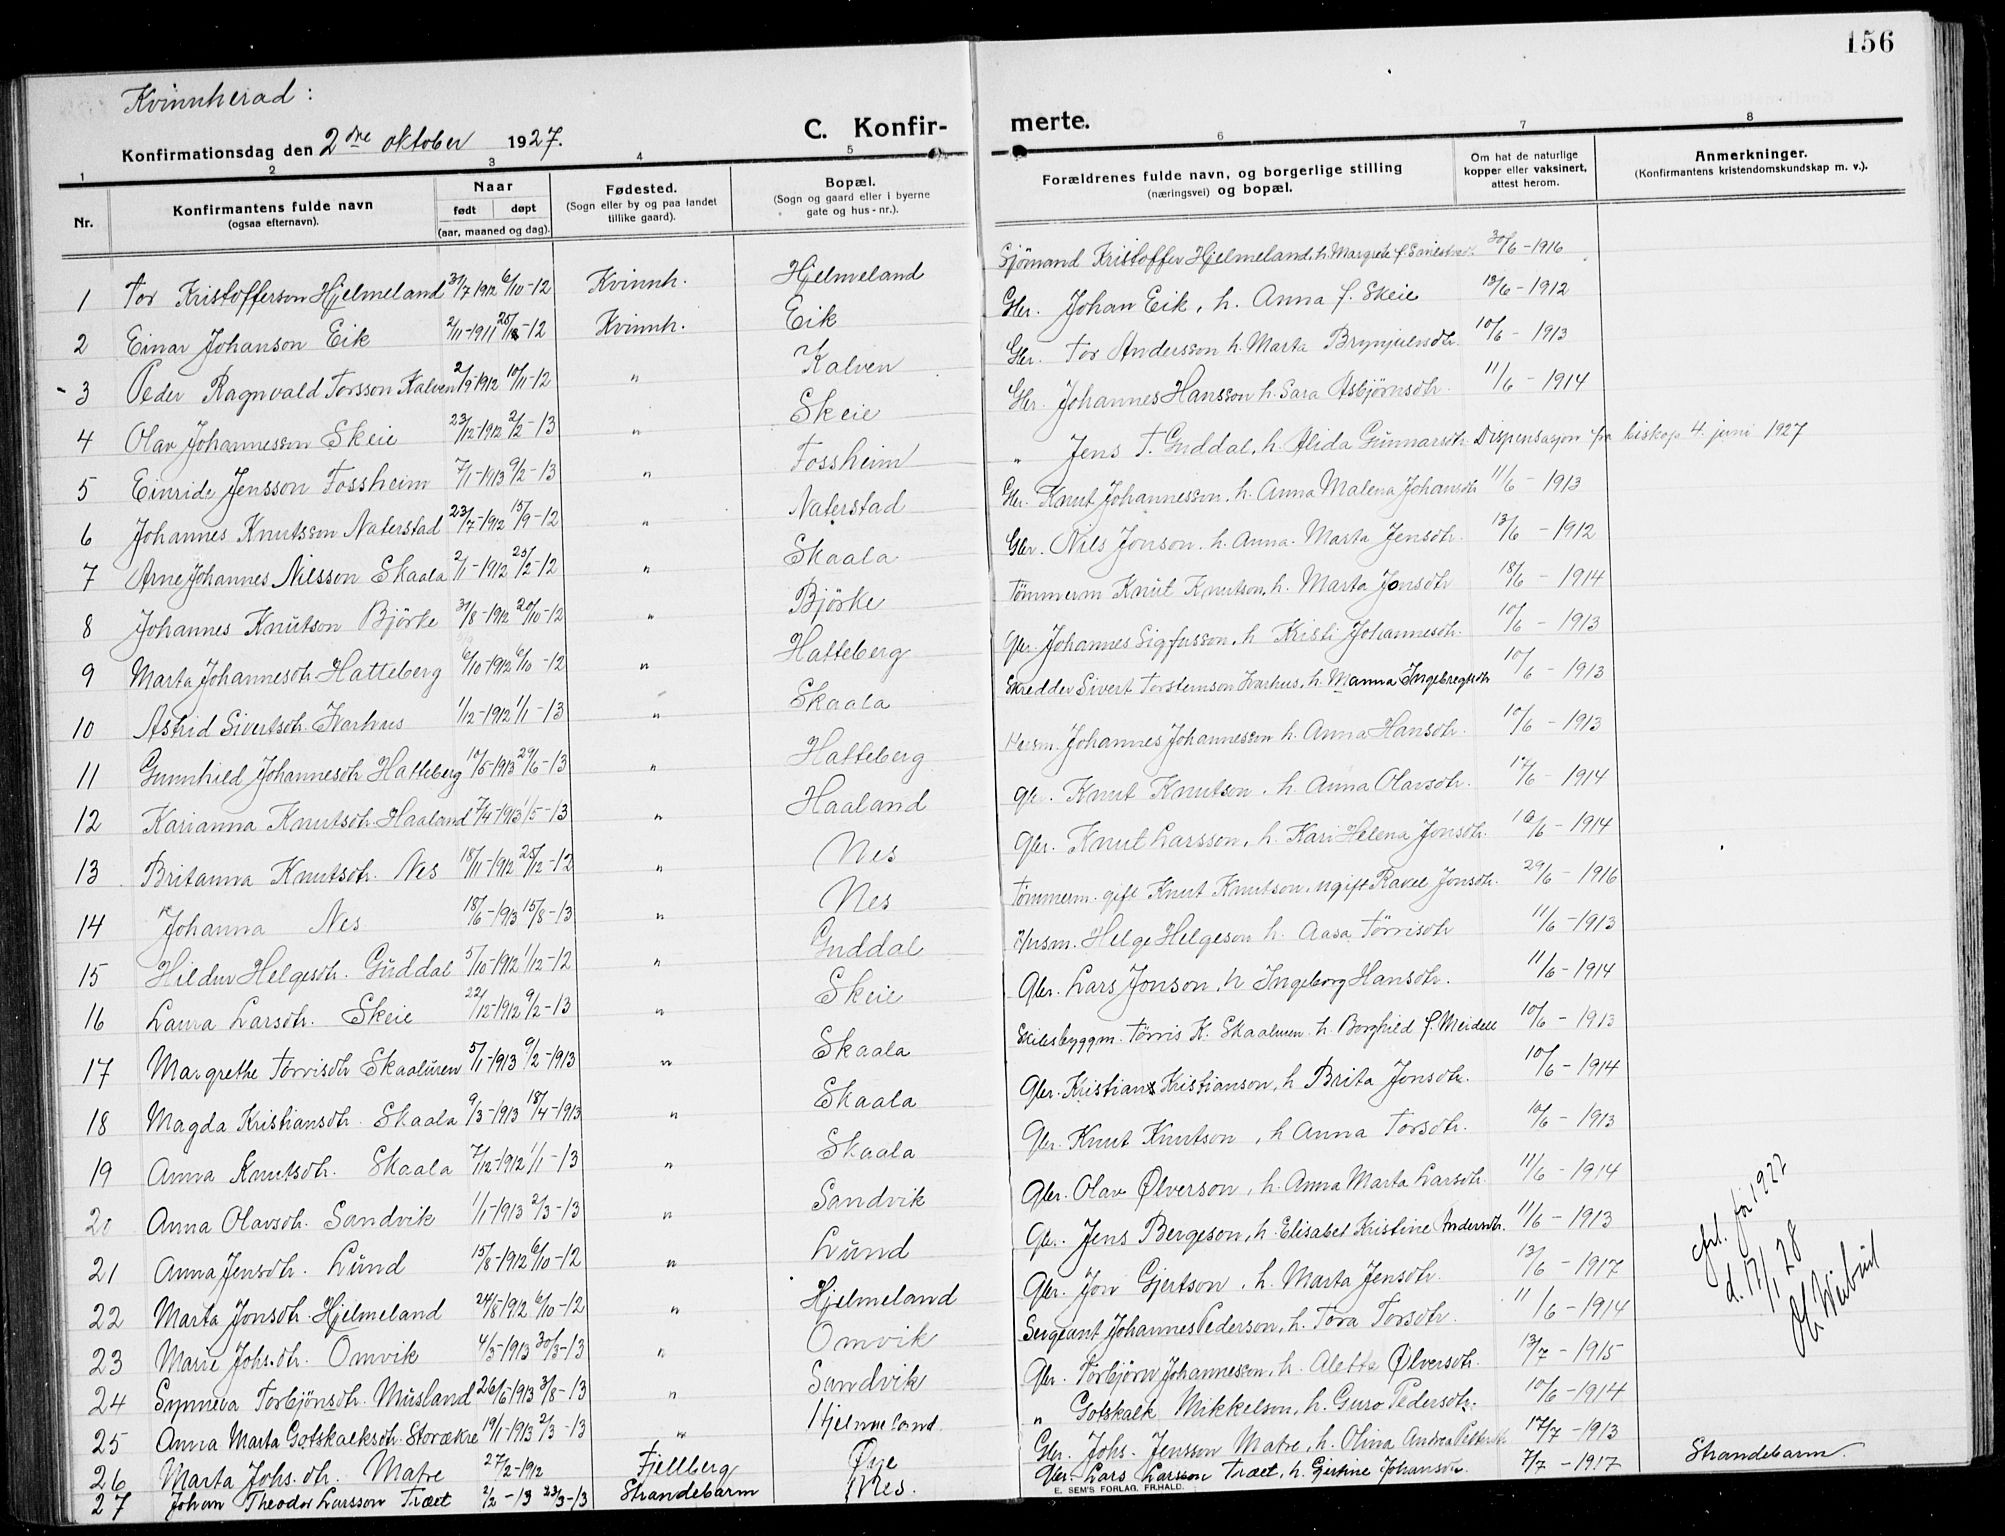 156
Kvinnherad:
Konfirmationsdag den 2dre oktober 1927.
C. Konfir- merte.
1 2 3 4 5 6 7 8
Nr. Konfirmantens fulde navn (ogsaa efternavn). Naar født døpt (aar, maaned og dag). Fødested. (Sogn eller by og paa landet tillike gaard). Bopæl. (Sogn og gaard eller i byerne gate og hus-nr.). Forældrenes fulde navn, og borgerlige stilling (næringsvei) og bopæl. Om hat de naturlige kopper eller vaksinert, attest herom. Anmerkninger. (Konfirmantens kristendomskundskap m. v.).
1 Tor Kristofferson Hjelmeland 31/7 1912 6/10-12 Kvinnh. Hjelmeland Sjömand Kristoffer Hjelmeland, h. Margrete f. 30/6-1916
2 Einar Johanson Eik 2/11-1911 -12 Kvinnh. Eik Gbr. Johan Eik, h. Anna f. Skeie 13/6-1912
3 Peder Ragnvald Torsson Kalven 2/9-1912 10/11-12 " Kalven Gbr. Tor Andersson h. Marta Brynjulvsdtr. 10/6-1913
4 Olav Johannesson Skeie 23/12-1912 2/2-13 " Skeie Gbr. Johannes Hansson h. Sara Asbjørnsdtr. 11/6-1914
5 Einride Jensson Fossheim 7/1-1913 9/2-13 " Fossheim " Jens T. Guddal, h. Alida Gunnarsdtr. Dispensasjon fra biskop 4. juni 1927
6 Johannes Knutsson Naterstad 23/7-1912 15/9-12 " Naterstad Gbr. Knut Johannesson, h. Anna Malena Johansdtr 11/6-1913
7 Arne Johannes Nilsson Skaala 2/1-1912 25/2-12 " Skaala Gbr. Nils Jonson, h. Anna Marta Jensdtr. 13/6-1912
8 Johannes Knutson Björke 31/8-1912 20/10-12 " Björke Tömmerm Knut Knutson, h. Marta Jonsdtr 18/6-1914
9 Marta Johannesdtr. Hatteberg 6/10-1912 6/10-12 " Hatteberg Gbr. Johannes Sigfusson, h Kristi Johannesdtr. 10/6-1913
10 Astrid Sivertsdtr. Kvarhus 1/12-1912 1/1-13 " Skaala Skredder Sivert Torstenson Kvarhus, h. Manna Ingebregtsdtr 10/6-1913
11 Gunnhild Johannesdtr Hatteberg 10/5-1913 29/6-13 " Hatteberg Husm. Johannes Johannesson h. Anna Hansdtr. 10/6-1913
12 Karianna Knutsdtr. Haaland 7/4-1913 1/5-13 " Haaland Gbr. Knut Knutson, h. Anna Olavsdtr. 17/6-1914
13 Britanna Knutsdtr. Nes 18/11-1912 25/12-12 " Nes Gbr. Knut Larsson, h. Kari Helena Jonsdtr. 10/6-1914
14 Johanna Nes 18/6-1913 15/8-13 " Nes Tömmerm. gift Knut Knutson, ugift Ravel Jonsdtr. 29/6-1916
15 Hildur Helgesdtr. Guddal 5/10-1912 1/12-12 " Guddal Husm. Helge Helgeson h. Aasa Törrisdtr 11/6-1913
16 Laura Larsdtr. Skeie 22/12-1912 9/2-13 " Skeie Gbr. Lars Jonson, h Ingeborg Hansdtr. 11/6-1914
17 Margrethe Törrisdtr Skaaluren 5/1-1913 9/2-1913 " Skaala Skibsbyggm. Törris K. Skaaluren h. Borghild f. Meidell 10/6-1913
18 Magda Kristiansdtr. Skaala 9/3-1913 18/4-1913 " Skaala Gbr. Kristian Kristianson, h Brita Jonsdtr. 10/6-1914
19 Anna Knutsdtr. Skaala 7/12-1912 1/1-13 " Skaala Gbr. Knut Knutson, h Anna Torsdtr. 10/6-1913
20 Anna Olavsdtr. Sandvik 1/1-1913 2/3-13 " Sandvik Gbr. Olav Ølverson, h. Anna Marta Larsdtr. 11/6-1914
21 Anna Jensdtr. Lund 15/8-1912 6/10-12 " Lund Gbr. Jens Bergeson, h. Elisabet Kristine Andersdtr. 11/6-1913
22 Marta Jonsdtr. Hjelmeland 24/8-1912 6/10-12 " Hjelmeland Gbr. Jon Gjertson, h. Marta Jensdtr. 13/6-1917
23 Marie Johs.dtr. Omvik 4/3-1913 30/3-13 " Omvik Sergeant Johannes Pederson, h. Tora Torsdtr. 11/6-1914
24 Synneva Torbjönsdtr. Musland 26/5-1913 3/8-13 " Sandvik Gbr. Torbjörn Johannesson, h. Aletta Ølversdtr. 13/7-1915
25 Anna Marta Gotskalksdtr. Storækre 19/1-1913 2/3-13 " Hjelmeland. " Gotskalk Mikkelson, h. Guro Pedersdtr. 10/6-1914
26 Marta Johs.dtr. Matre 27/2-1912 Fjellberg Øye Gbr. Johs. Jensson Matre, h. Olina Andrea 17/7-1913
27 Johan Theodor Larsson Træet 2/2-13 23/3-13 Strandebarm Nes. Gbr. Lars Larsson Træet, h. Gjertine Johansdtr. 7/7-1917 Strandebarm.
for 1922
d. 17/1 28
E. SEM'S FORLAG, FR.HALD.